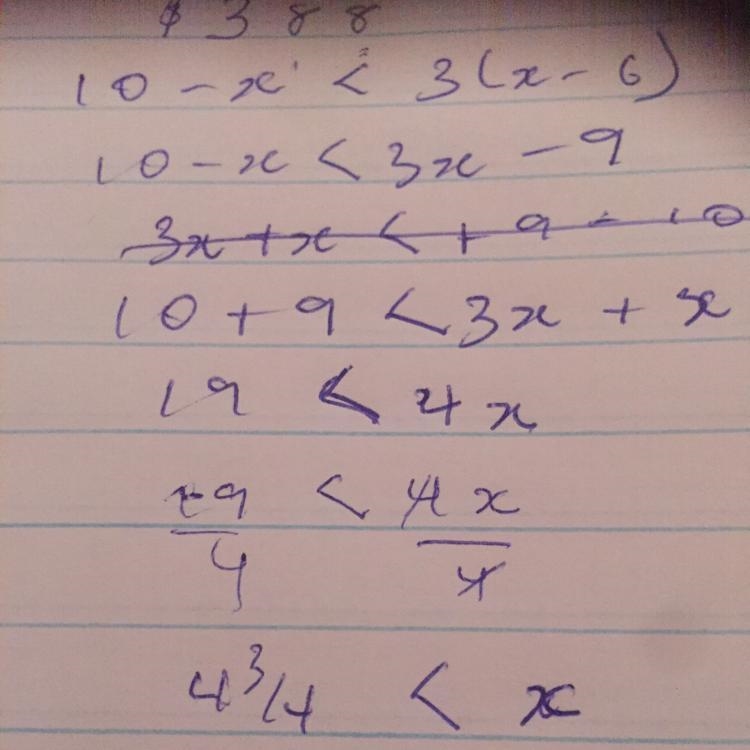 $ 3 8 8
10 - x < 3(x - 6)
10 - x < 3x - 9
3x + x < + 9 - 10
10 + 9 < 3x + x
19 < 4x
19/4 < 4x/4
4 3/4 < x